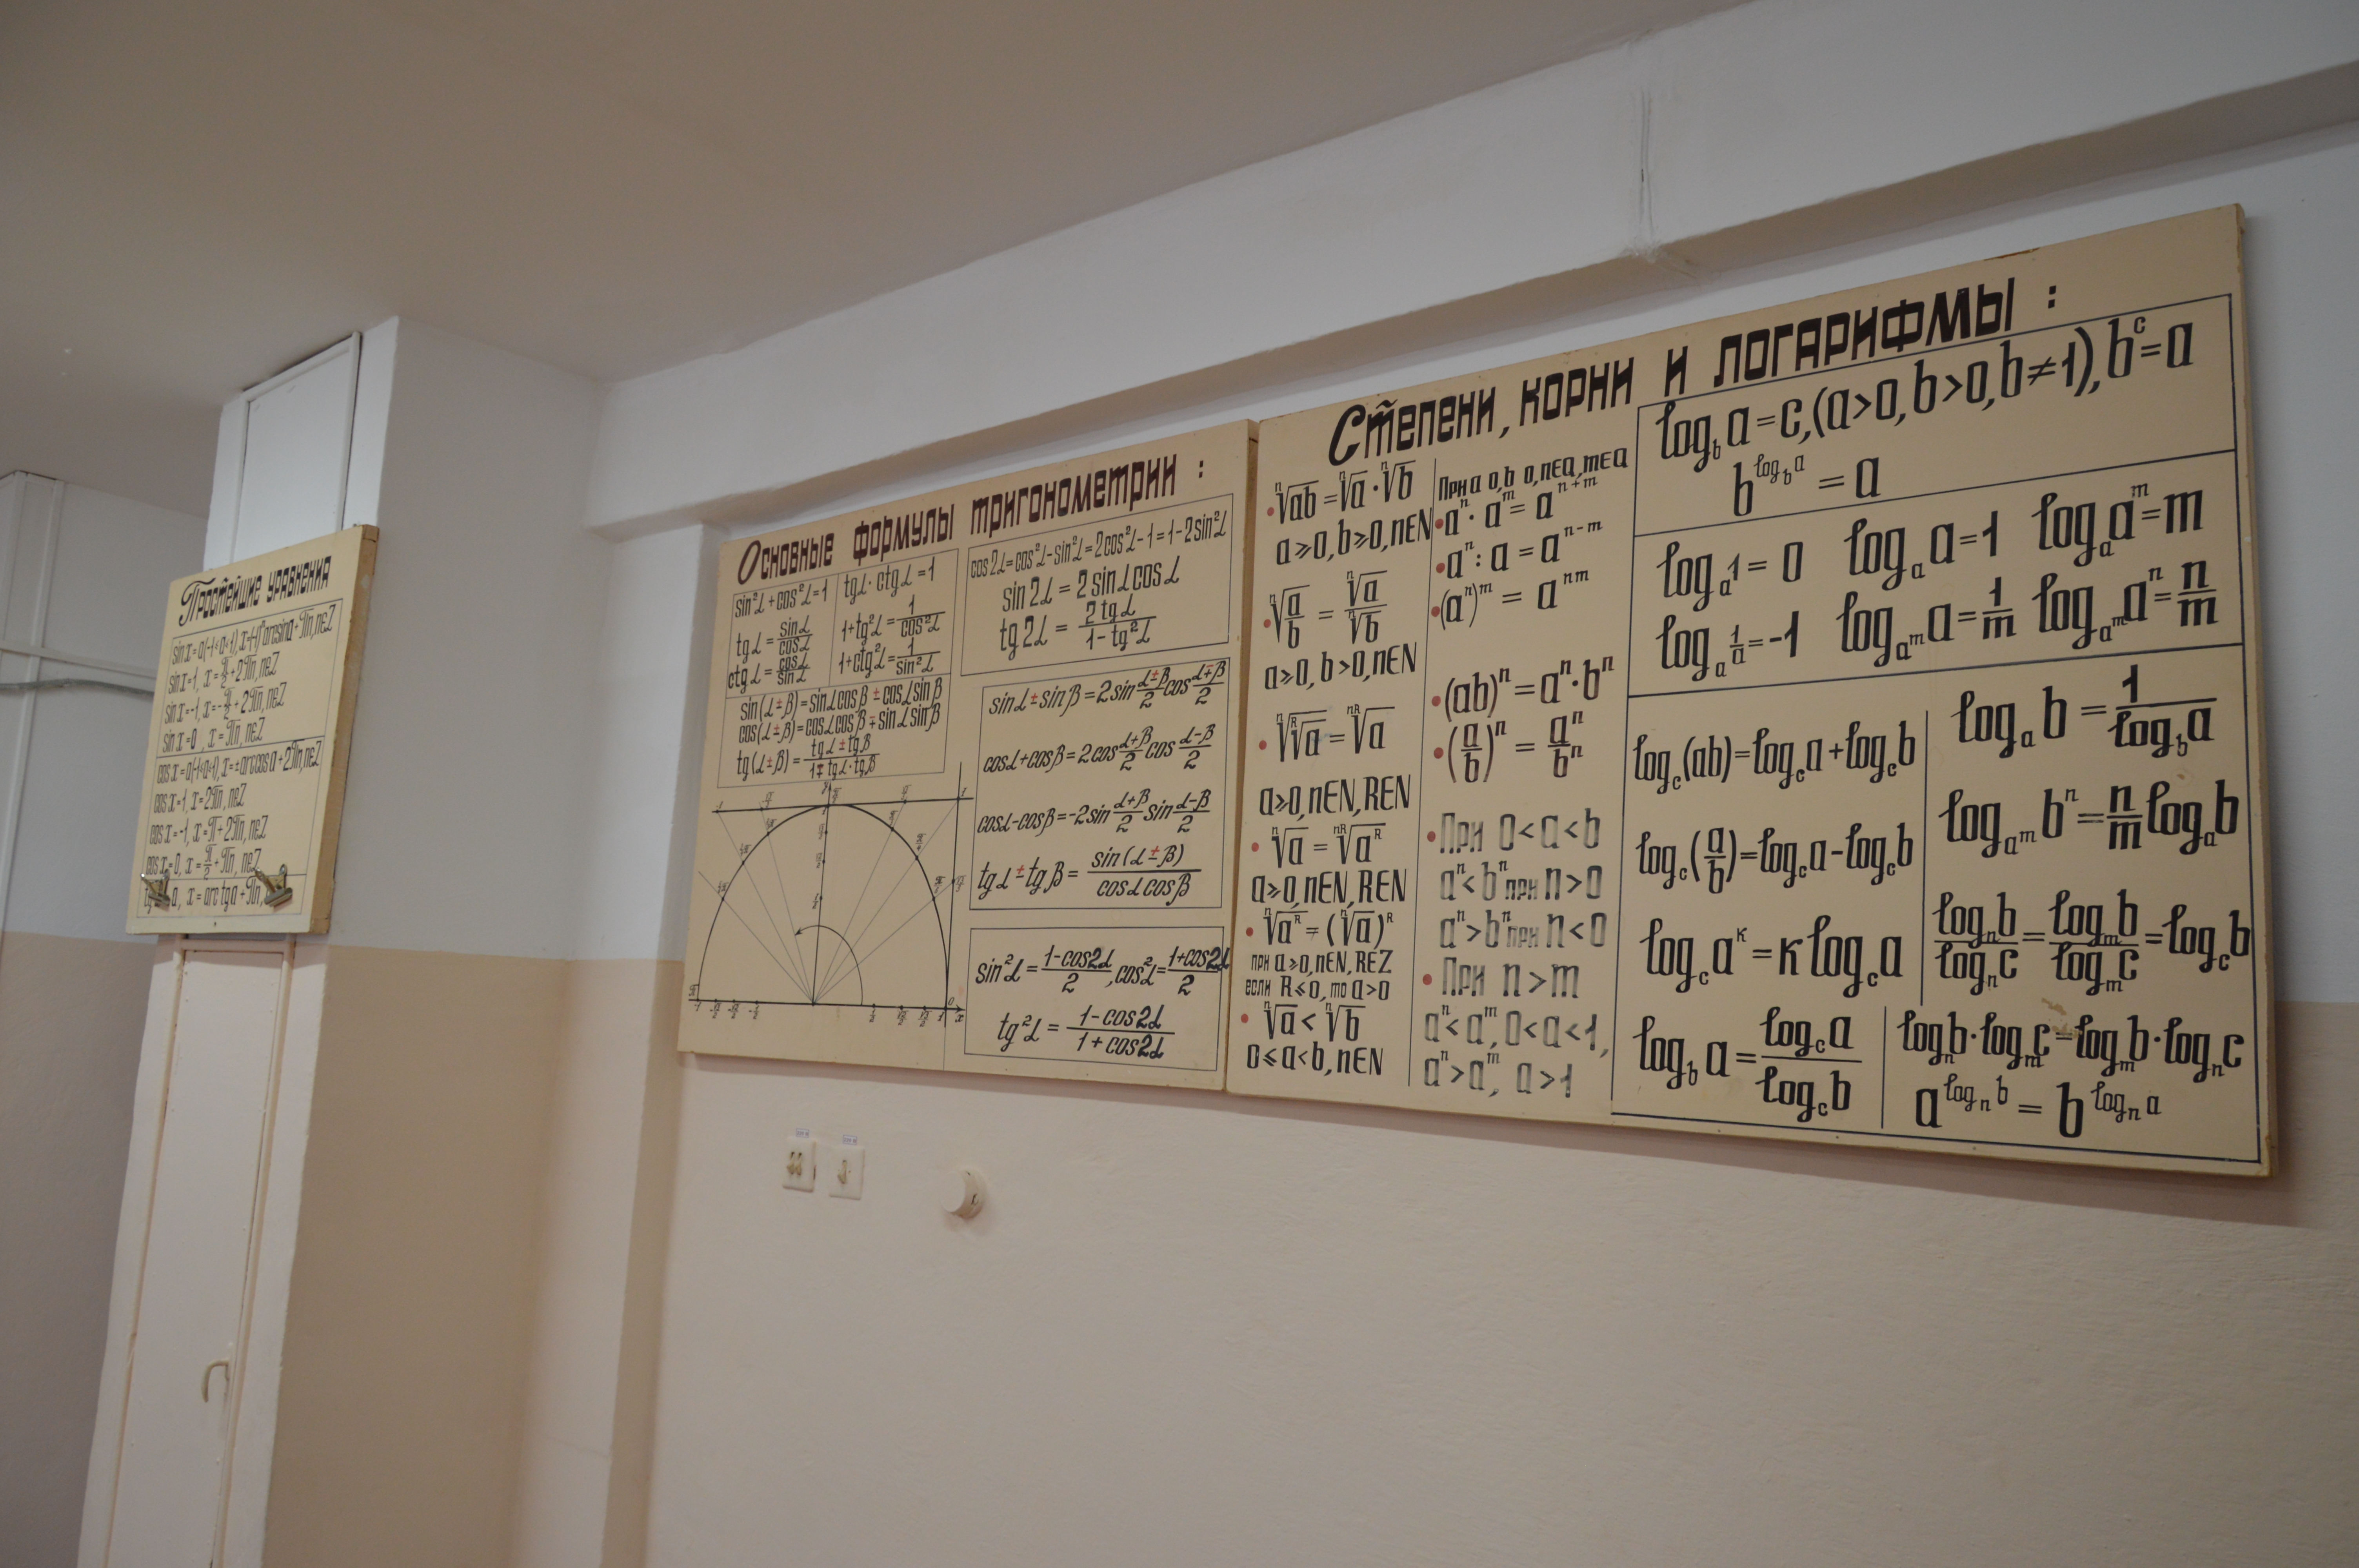 Простейшие уравнения
sin x = a(-1≤a≤1), x=(-1)ⁿ arcsin a + πn, n∈Z
sin x=1, x = π/2 + 2πn, n∈Z
sin x=-1, x=-π/2 + 2πn, n∈Z
sin x=0, x=πn, n∈Z
cos x=a(-1≤a≤1), x=±arccos a+2πn, n∈Z
cos x=1, x=2πn, n∈Z
cos x=-1, x=π+2πn, n∈Z
cos x=0, x=π/2+πn, n∈Z
a, x = arctg a + πn,
Основные формулы тригонометрии :
sin²α + cos²α = 1
tg α = sin α / cos α
ctg α = cos α / sin α
tg α · ctg α = 1
1+tg²α = 1/cos²α
1+ctg²α = 1/sin²α
sin(α ± β) = sin α cos β ± cos α sin β
cos(α ± β) = cos α cos β ∓ sin α sin β
tg(α ± β) = (tg α ± tg β)/(1 ∓ tg α · tg β)
cos 2α = cos²α - sin²α = 2cos²α - 1 = 1 - 2sin²α
sin 2α = 2 sin α cos α
tg 2α = 2 tg α / (1 - tg²α)
sin α ± sin β = 2 sin (α±β)/2 cos (α∓β)/2
cos α + cos β = 2cos (α+β)/2 cos (α-β)/2
cos α - cos β = -2 sin (α+β)/2 sin (α-β)/2
tg α ± tg β = sin(α ± β)/(cos α cos β)
sin²α = (1-cos2α)/2, cos²α = (1+cos2α)/2
tg²α = (1 - cos2α)/(1 + cos2α)
Степени, корни и логарифмы :
ⁿ√ab = ⁿ√a · ⁿ√b
a ⩾ 0, b ⩾ 0, n∈N
ⁿ√(a/b) = ⁿ√a / ⁿ√b
a ⩾ 0, b > 0, n∈N
ⁿ√ᴿ√a = ⁿᴿ√a
a ⩾ 0, n∈N, R∈N
ⁿ√a = ⁿᴿ√aᴿ
a ⩾ 0, n∈N, R∈N
ⁿ√aᴿ = (ⁿ√a)ᴿ
при a ⩾ 0, n∈N, R∈Z
если R ⩽ 0, то a > 0
ⁿ√a < ⁿ√b
0 ⩽ a < b, n∈N
При a 0, b 0, n∈Q, m∈Q
aⁿ · aᵐ = aⁿ⁺ᵐ
aⁿ : a = aⁿ⁻ᵐ
(aⁿ)ᵐ = aⁿᵐ
(ab)ⁿ = aⁿ · bⁿ
(a/b)ⁿ = aⁿ/bⁿ
При 0 < a < b
aⁿ < bⁿ при n > 0
aⁿ > bⁿ при n < 0
При n > m
aⁿ < aᵐ, 0 < a < 1,
aⁿ > aᵐ, a > 1
log_b a = c, (a > 0, b > 0, b ≠ 1), bᶜ = a
b^(log_b a) = a
log_a 1 = 0 log_a a = 1 log_a aᵐ = m
log_a 1/a = -1 log_(aᵐ) a = 1/m log_(aᵐ) aⁿ = n/m
log_c (ab) = log_c a + log_c b
log_c (a/b) = log_c a - log_c b
log_c aᴷ = к log_c a
log_b a = log_c a / log_c b
log_a b = 1/log_b a
log_(aᵐ) bⁿ = n/m log_a b
log_n b / log_n c = log_m b / log_m c = log_c b
log_n b · log_m c = log_m b · log_n c
a^(log_n b) = b^(log_n a)